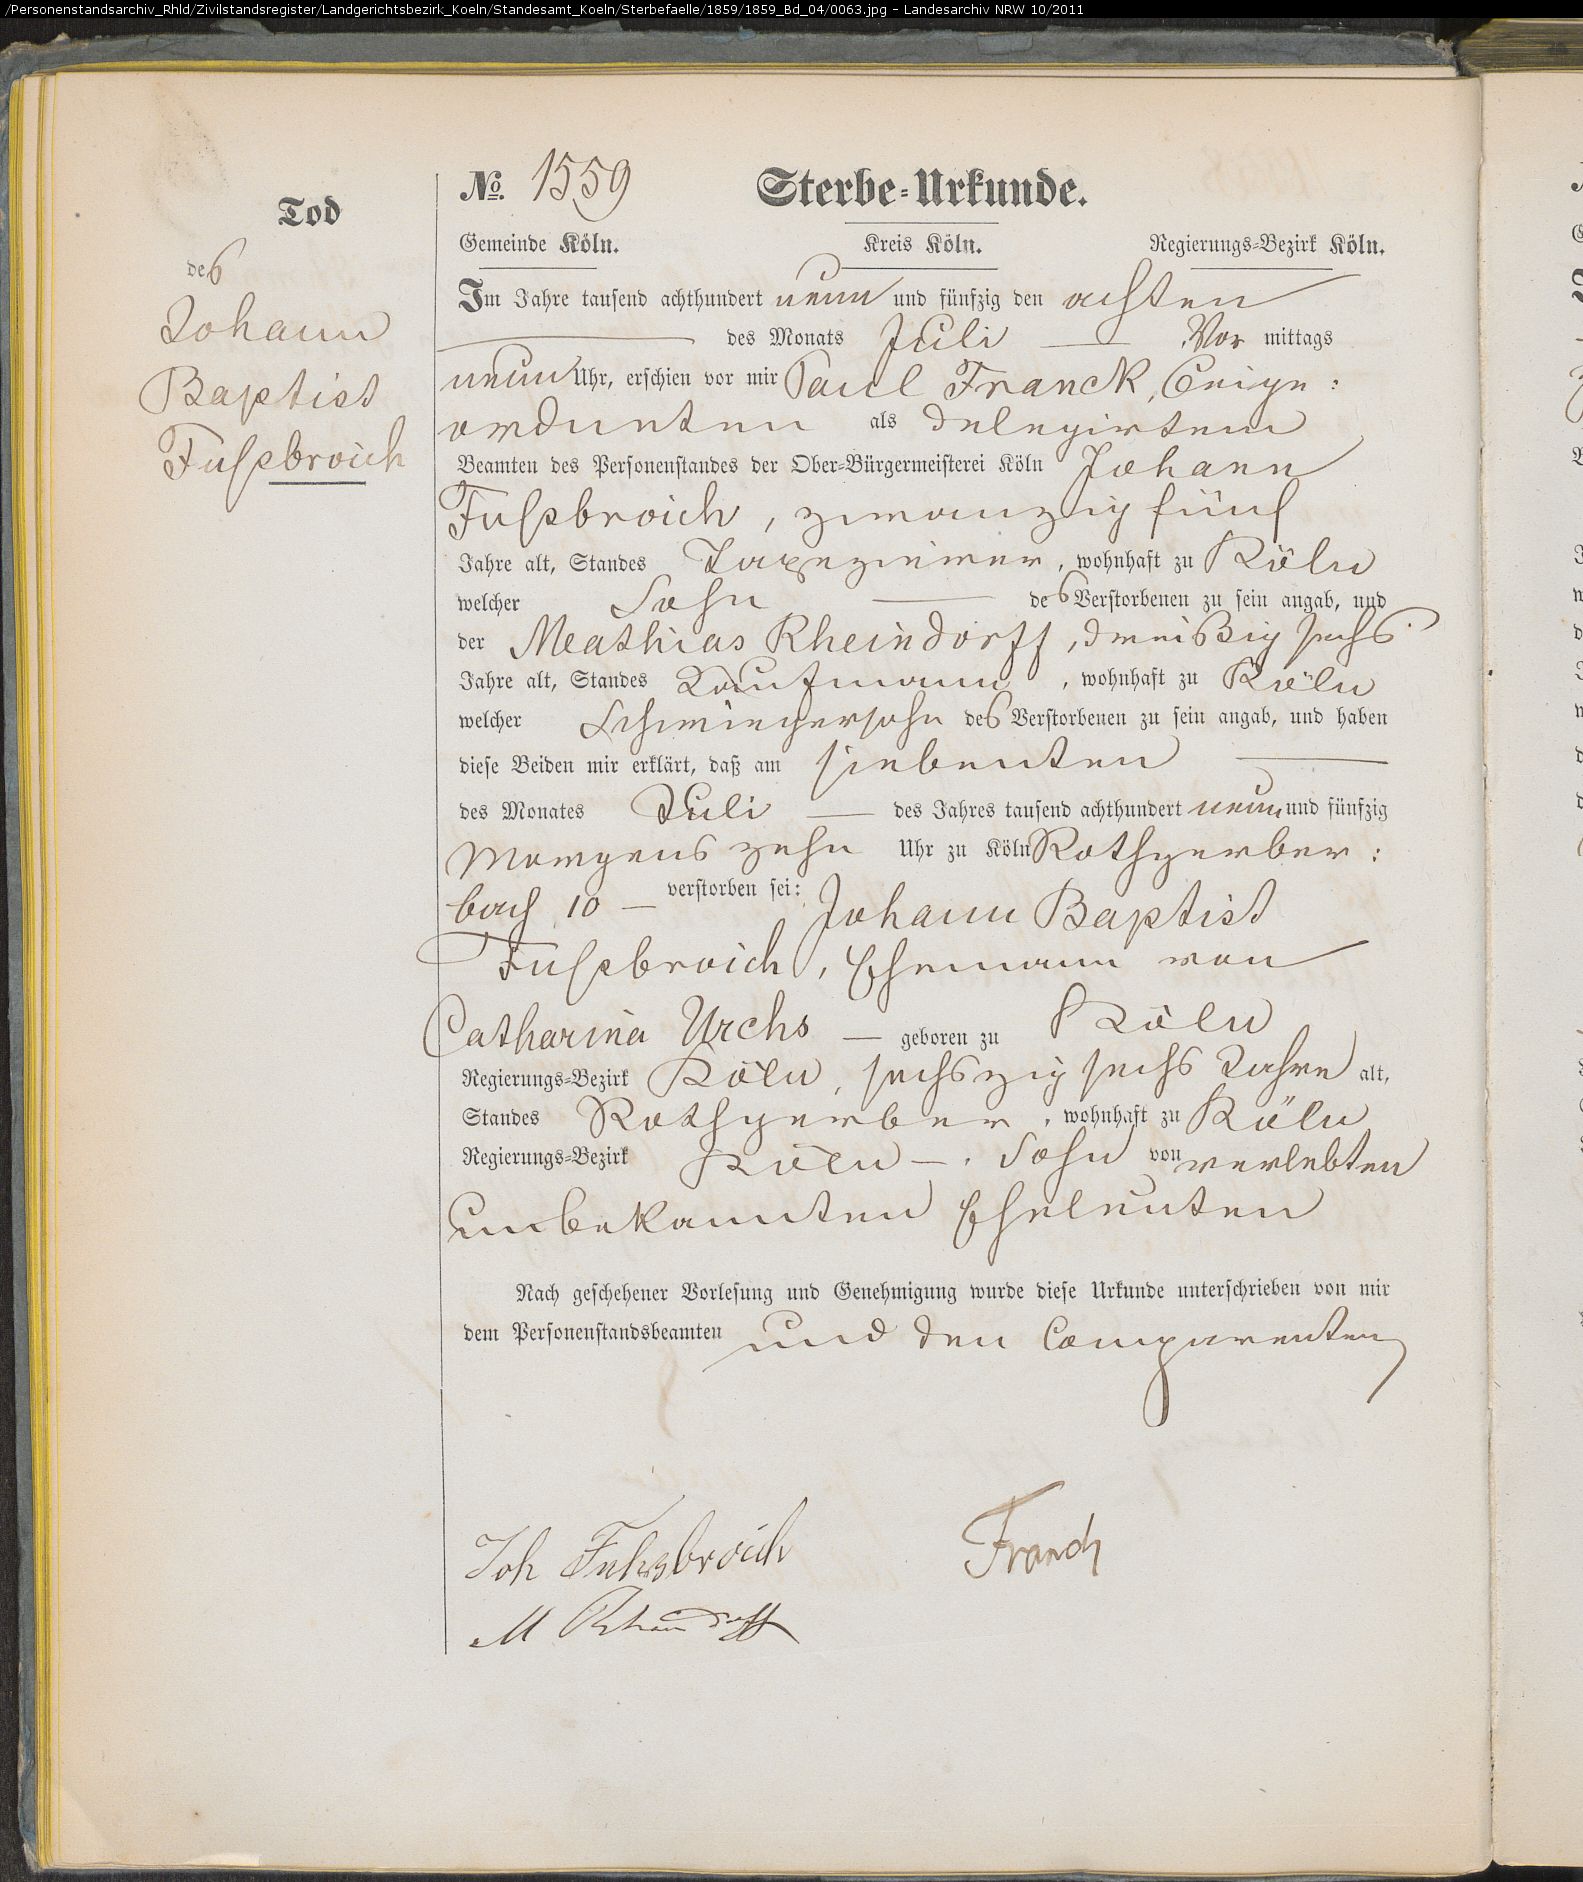 /Personenstandsarchiv_Rhld/Zivilstandsregister/Landgerichtsbezirk_Koeln/Standesamt_Koeln/Sterbefaelle/1859/1859_Bd_04/0063.jpg - Landesarchiv NRW 10/2011
No. 1559 Sterbe-Urkunde.
Tod
des
Johann
Baptist
Fußbroich
Gemeinde Köln. Kreis Köln. Regierungs-Bezirk Köln.
Im Jahre tausend achthundert neun und fünfzig den achten
des Monats Juli Vor mittags
neun Uhr, erschien vor mir Paul Franck, Beige:
ordneten als delegirtem
Beamten des Personenstandes der Ober-Bürgermeisterei Köln Johann
Fußbroich, zwanzig fünf
Jahre alt, Standes Tapezierer, wohnhaft zu Köln
welcher Sohn des Verstorbenen zu sein angab, und
der Mathias Rheindorff, dreißig sechs
Jahre alt, Standes Kaufmann, wohnhaft zu Köln
welcher Schwiegersohn des Verstorbenen zu sein angab, und haben
diese Beiden mir erklärt, daß am siebenten
des Monates Juli des Jahres tausend achthundert neun und fünfzig
Morgens zehn Uhr zu Köln Rothgerber:
bach 10 verstorben sei: Johann Baptist
Fußbroich, Ehemann von
Catharina Urchs geboren zu Köln
Regierungs-Bezirk Köln, sechszig sechs Jahre alt,
Standes Rothgerber, wohnhaft zu Köln
Regierungs-Bezirk Köln, Sohn von verlebten
unbekannten Eheleuten
Nach geschehener Vorlesung und Genehmigung wurde diese Urkunde unterschrieben von mir
dem Personenstandsbeamten und den Comparenten
Joh Fuhsbroich Franck
M Rheindorff